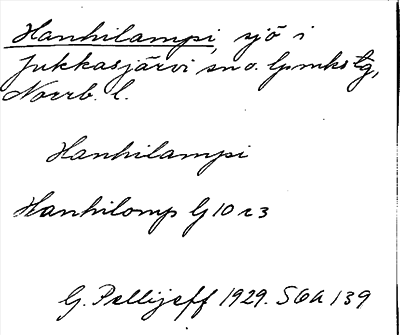 Hanhilampi, sjö i
Jukkasjärvi sn o. lpmks tg,
Norrb. l.
Hanhilampi
Hanhilomp G 10 r 3
G. Pellijeff 1929. SOA 139